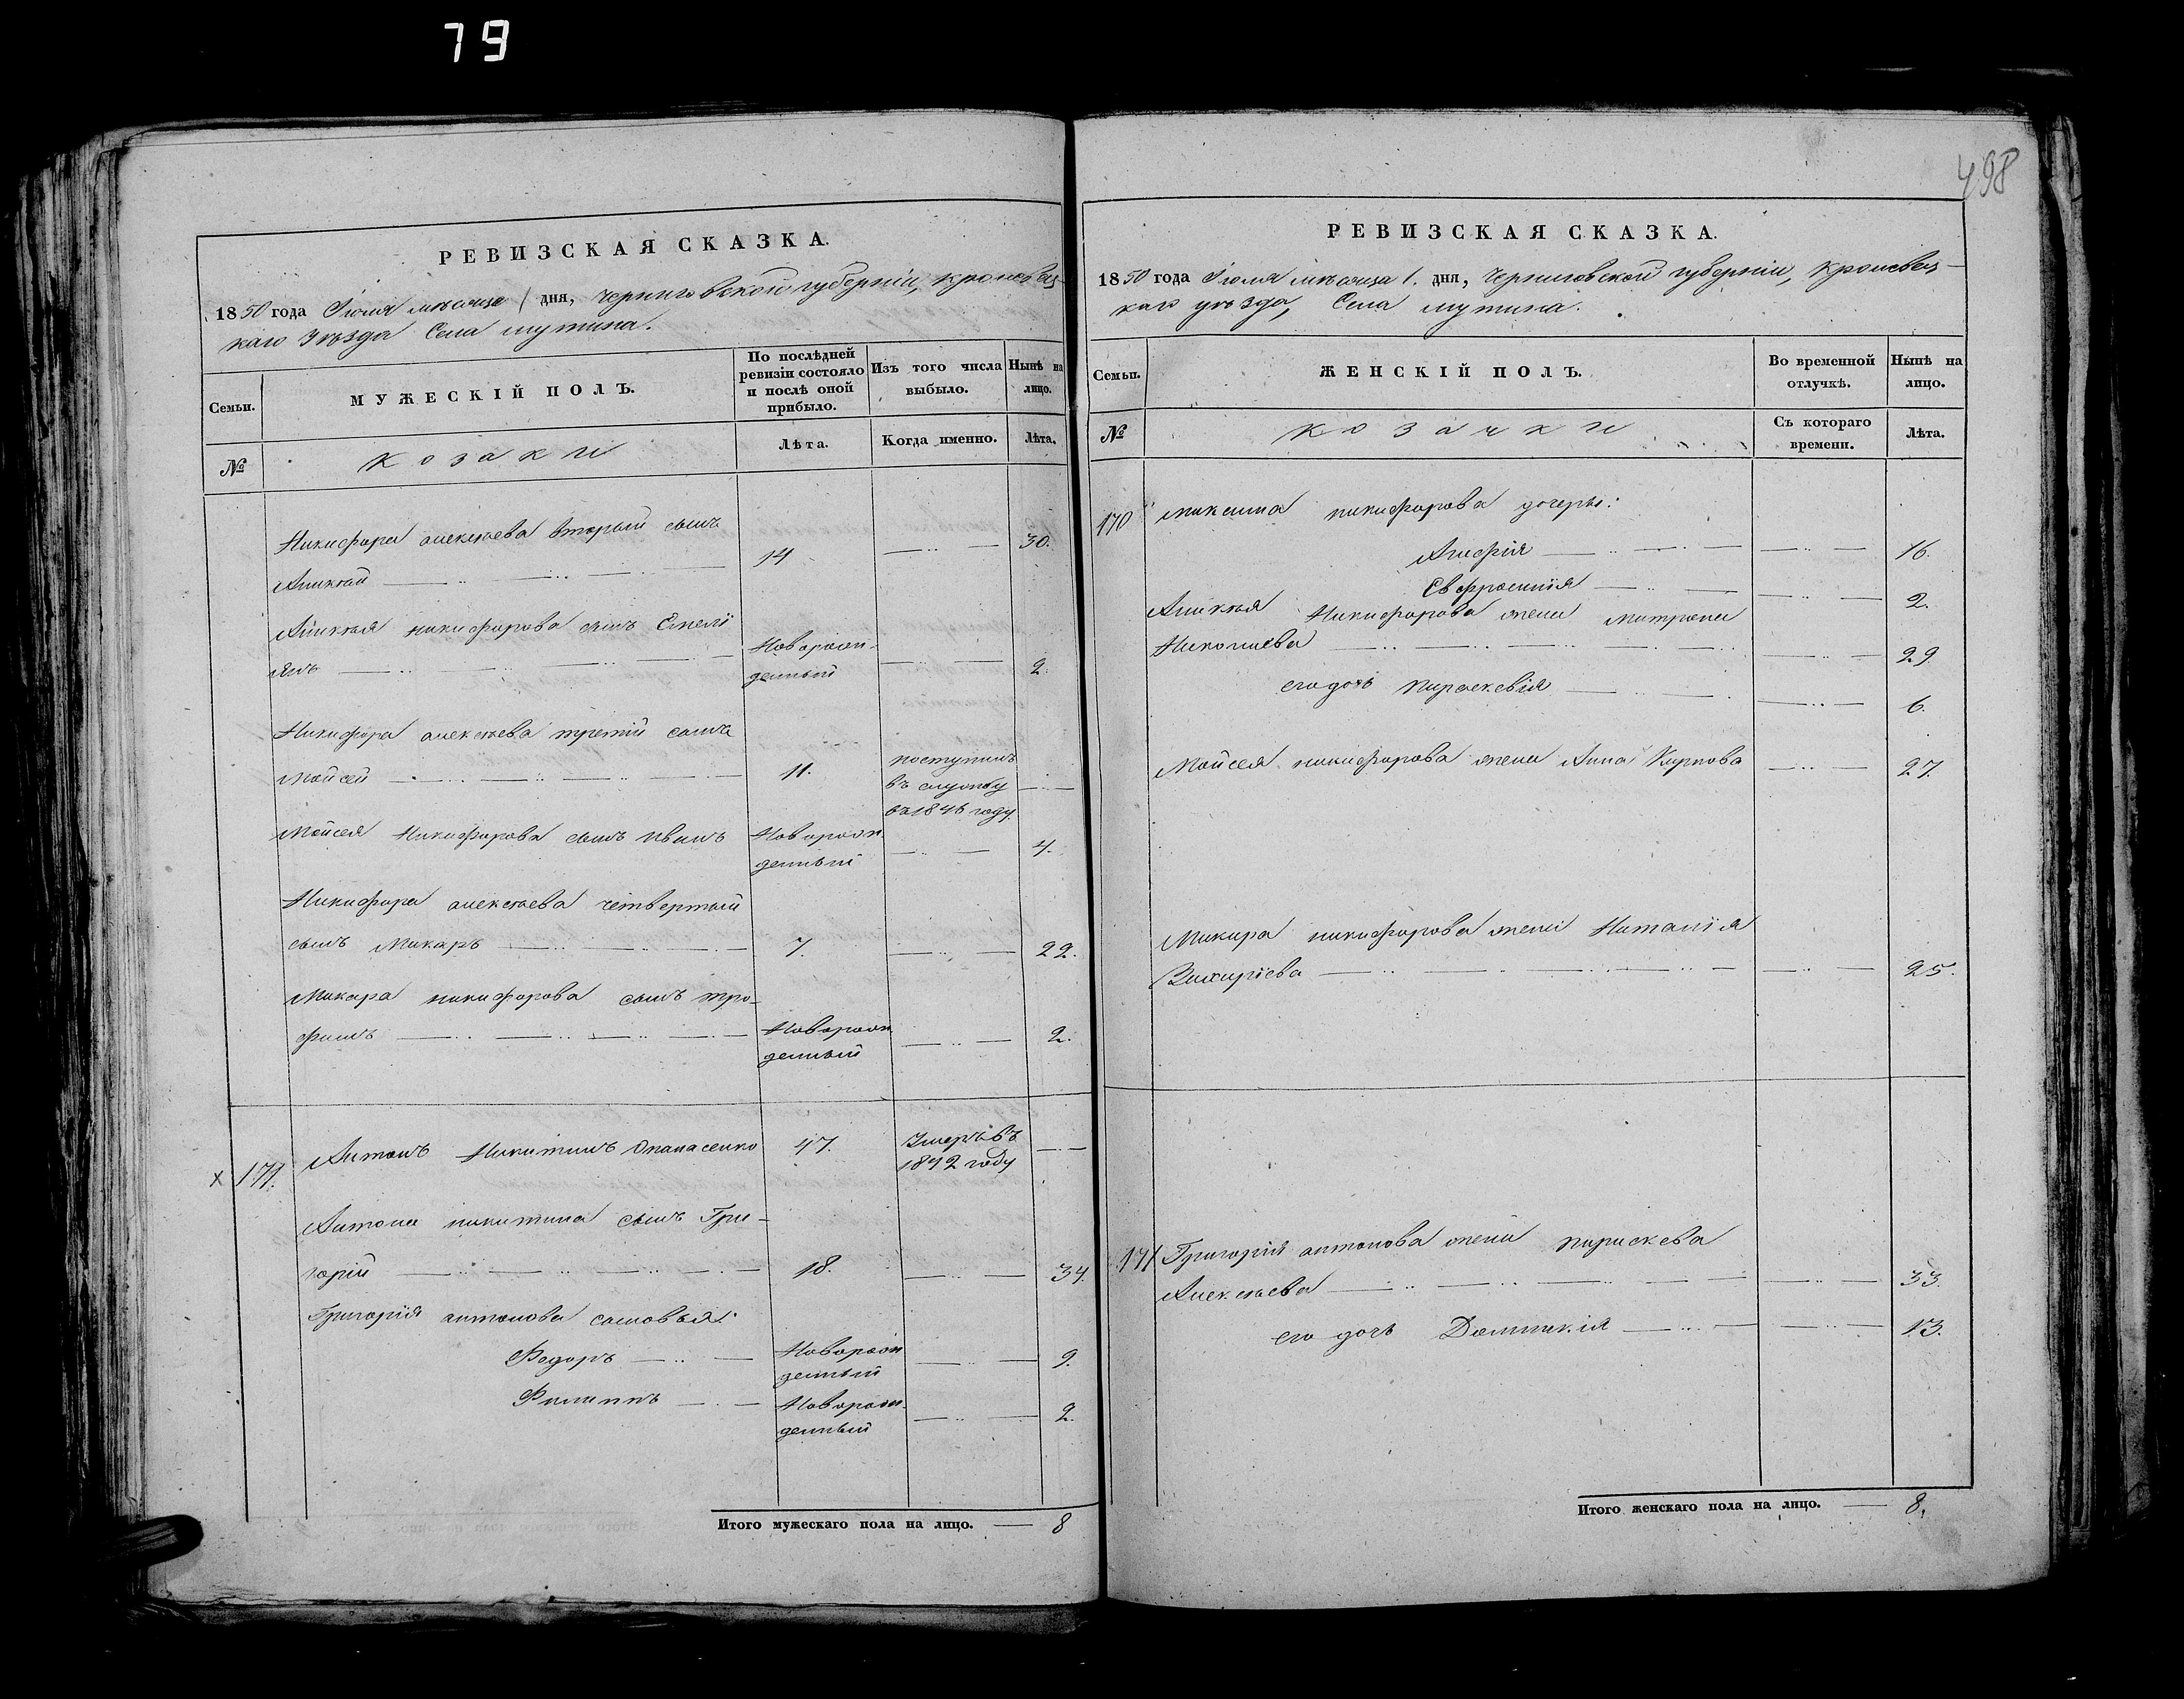 79
498
РЕВИЗСКАЯ СКАЗКА.
1850 года Іюля мѣсяца 1 дня, Черниговской губерніи, Кролевец-
каго Уѣзда Села мутина.
Семьи.
МУЖЕСКІЙ ПОЛЪ.
По послѣдней ревизіи состояло и послѣ оной прибыло.
Изъ того числа выбыло.
Нынѣ на лицо.
№
Козаки
Лѣта.
Когда именно.
Лѣта.
Никифора алексѣева вторый сынъ
14 30.
Аликсѣй
Никифорова сынъ Емелі
янъ Новорож-
денный 2.
Никифора алексѣева третій сынъ
Мойсей 11. поступилъ
въ службу
въ 1846 году
Мойсея Никифорова сынъ Иванъ Новорож
денный 4.
Никифора алексѣева четвертый
сынъ Макаръ 7. 22.
Макара никифорова сынъ тро-
фимъ Новорож
денный 2.
х 171. Антонъ Никитинъ Опанасенко 47. Умеръ въ
1842 году
Антона никитина сынъ Гри-
горій 18. 34.
Григорія антонова сыновья:
Федоръ Новорож
денный 9.
Филиппъ Новорож
денный 2.
Итого мужескаго пола на лицо. 8
РЕВИЗСКАЯ СКАЗКА.
1850 года Іюля мѣсяца 1. дня, Черниговской губерніи, Кролевец-
каго уѣзда, Села мутина.
Семьи.
ЖЕНСКІЙ ПОЛЪ.
Во временной отлучкѣ.
Нынѣ на лицо.
№
козачки
Съ котораго времени.
Лѣта.
170 никифорова дочеры:
Агафія 16.
Евфросинія 2.
Никифорова жена матрона
Николаева 29
его дочь параскевія 6.
Мойсея никифорова жена Анна Карпова 27.
Макара никифорова жена Наталія
Захаріева 25.
171 Григорія антонова жена параскева
Алексѣева 33.
его дочь Домникія 13.
Итого женскаго пола на лицо. 8.